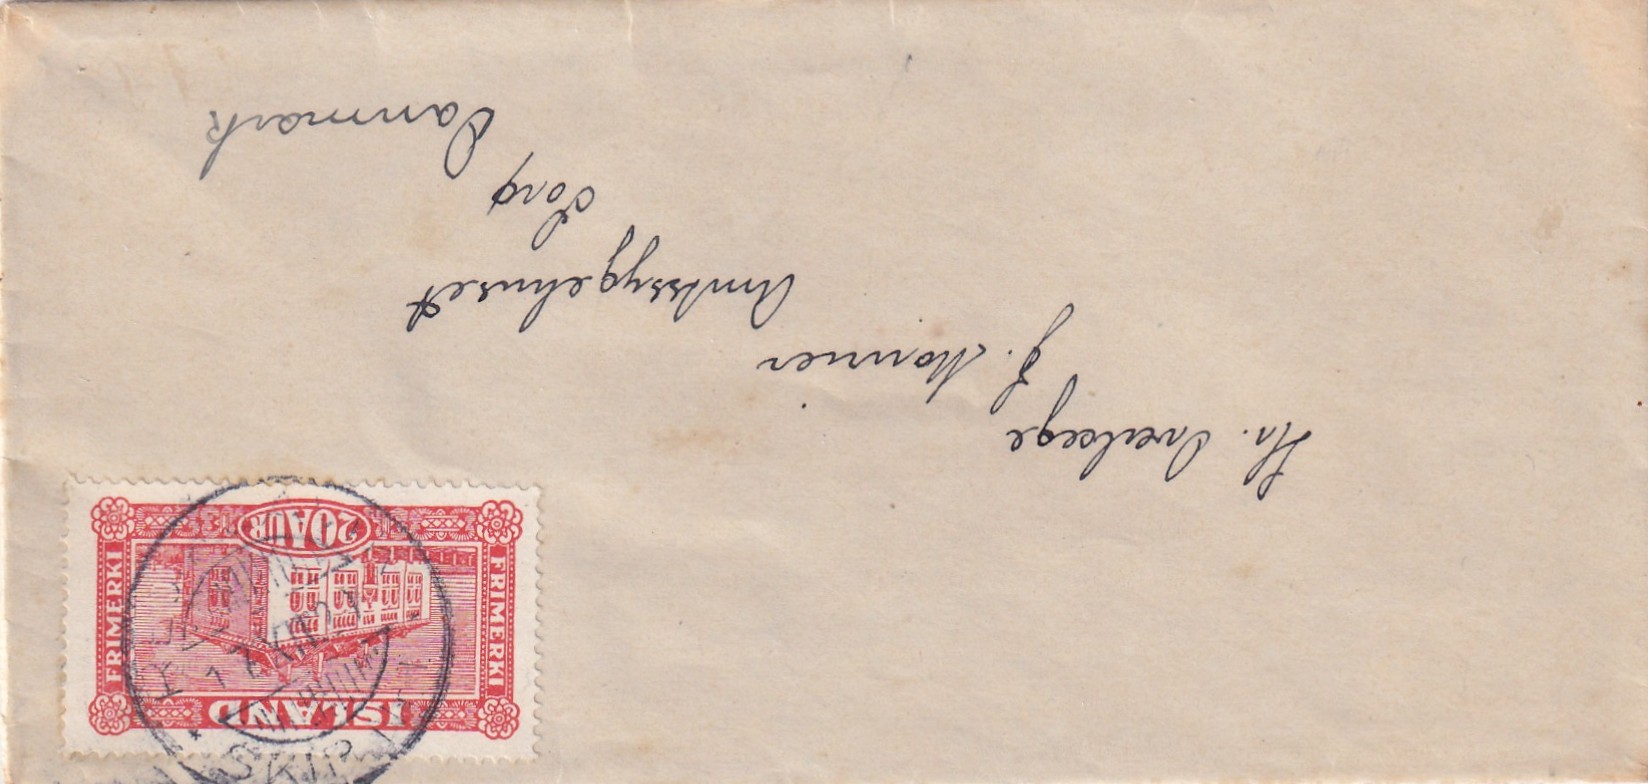 ISLAND
FRIMERKI
FRIMERKI
20 AUR
Hr. Overlæge
J. Monner
Amtssygehuset
Sorø
Danmark